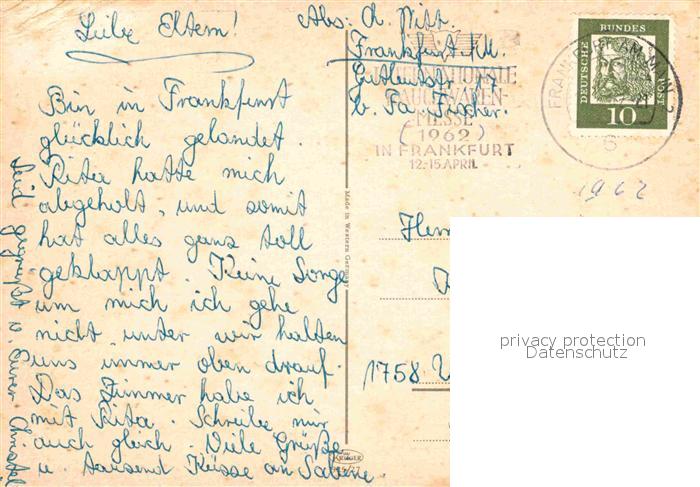 Liebe Eltern!
Bin in Frankfurt
glücklich gelandet.
Rita hatte mich
abgeholt, und somit
hat alles ganz toll
geklappt. Keine Sorge
um mich ich gehe
nicht unter wir halten
uns immer oben drauf.
Das Zimmer habe ich
mit Rita. Schreibe mir
auch gleich. Viele Grüße
u. tausend Küsse an Sabine.
Seid gegrüßt v. Eurer Christel
Abs: Ch. Witt.
Frankfurt /M.
Gutleutstr.
b. Fa. Fischer.
INTERNATIONALE
RAUCHWAREN-
MESSE
(1962)
IN FRANKFURT
12.-15. APRIL
DEUTSCHE BUNDESPOST
10
FRANKFURT AM MAIN
6
1962
1758
Made in Western Germany
KRÜGER
privacy protection
Datenschutz